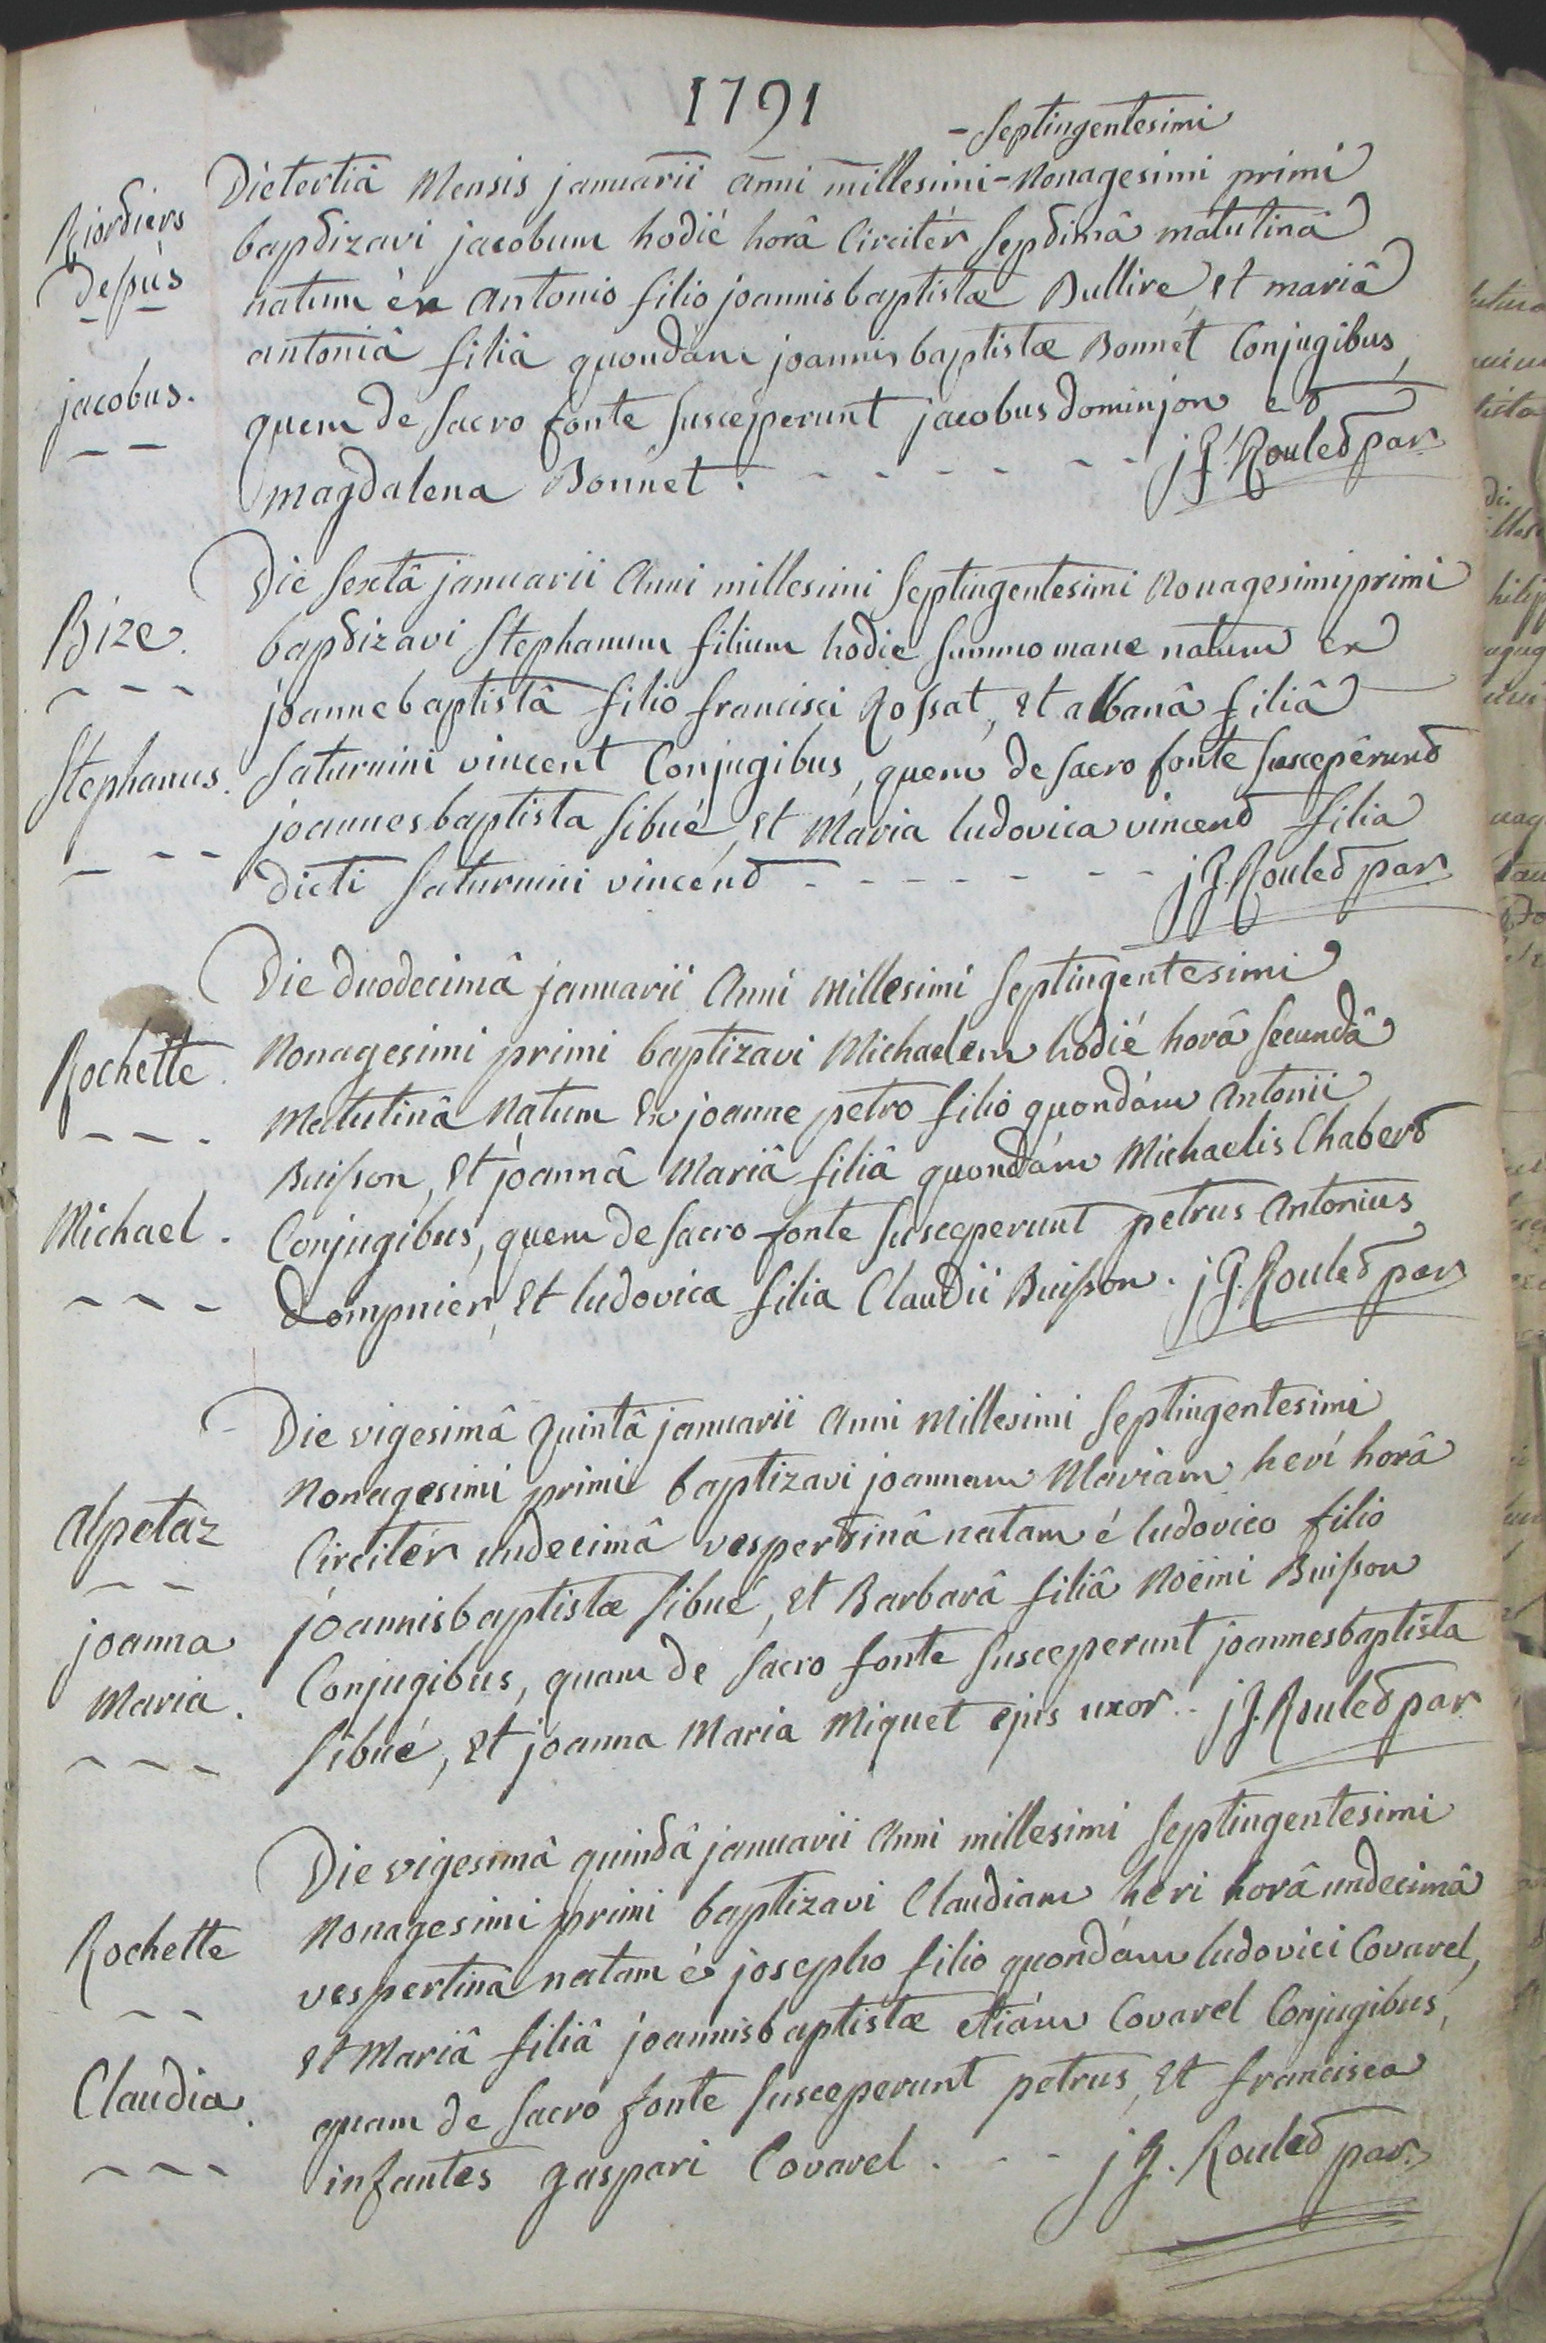 1791
- septingentesimi
Die tertiâ Mensis januarii anni millesimi - Nonagesimi primi
Riordiers
baptizavi jacobum hodié horâ Circitér septimâ matutinâ
despús
natum éx Antonio filio joannisbaptistæ Bullire, et mariâ
antoniâ filiâ quondám joannisbaptistæ Bonnét Conjugibus,
jacobus.
quem de sacro fonte susceperunt jacobus dominjon et
magdalena Bonnet. - - - - - - - j G. Roulet par.
Die sextâ januarii Anni millesimi septingentesimi Nonagesimi primi
Bize.
baptizavi Stephanum filium hodie summo mane natum ex
joannebaptistâ filio francisci Rossat, et albanâ filiâ
Stephanus.
saturnini vincent Conjugibus, quem de sacro fonte suscepêrunt
joannesbaptista sibué, et Maria ludovica vincent filia
dicti saturnini vincént - - - - - - - - j G. Roulet par.
Die duodecimâ januarii Anni Millesimi septingentesimi
Rochette.
Nonagesimi primi baptizavi Michaelem hodié horâ secundâ
Matutinâ Natum Ex joanne petro filio quondám Antonii
Buisson, Et joannâ Mariâ filiâ quondám Michaelis Chabert
Michael.
Conjugibus, quem de sacro fonte susceperunt petrus Antonius
Dompnier, Et ludovica filia Claudii Buisson. j G. Roulet par
Die vigesimâ Quintâ januarii Anni Millesimi septingentesimi
Nonagesimi primi baptizavi joannam Mariam heri horâ
Alpetaz
Circitér undecimâ vespertinâ natam é ludovico filio
joannisbaptistæ sibué, et Barbarâ filiâ Noëmi Buisson
joanna
Conjugibus, quam de sacro fonte susceperunt joannesbaptista
Maria.
sibué, et joanna Maria Miquet ejus uxor.. j G. Roulet par.
Die vigesimâ quintâ januarii Anni millesimi septingentesimi
Nonagesimi primi baptizavi Claudiam heri horâ undecimâ
Rochette
vespertinâ natam é josepho filio quondám ludovici Covarel,
et Mariâ filiâ joannisbaptistæ etiám Covarel Conjugibus,
Claudia.
quam de sacro fonte susceperunt petrus, et francisca
infantes gaspari Covarel. - - j G. Roulet par.